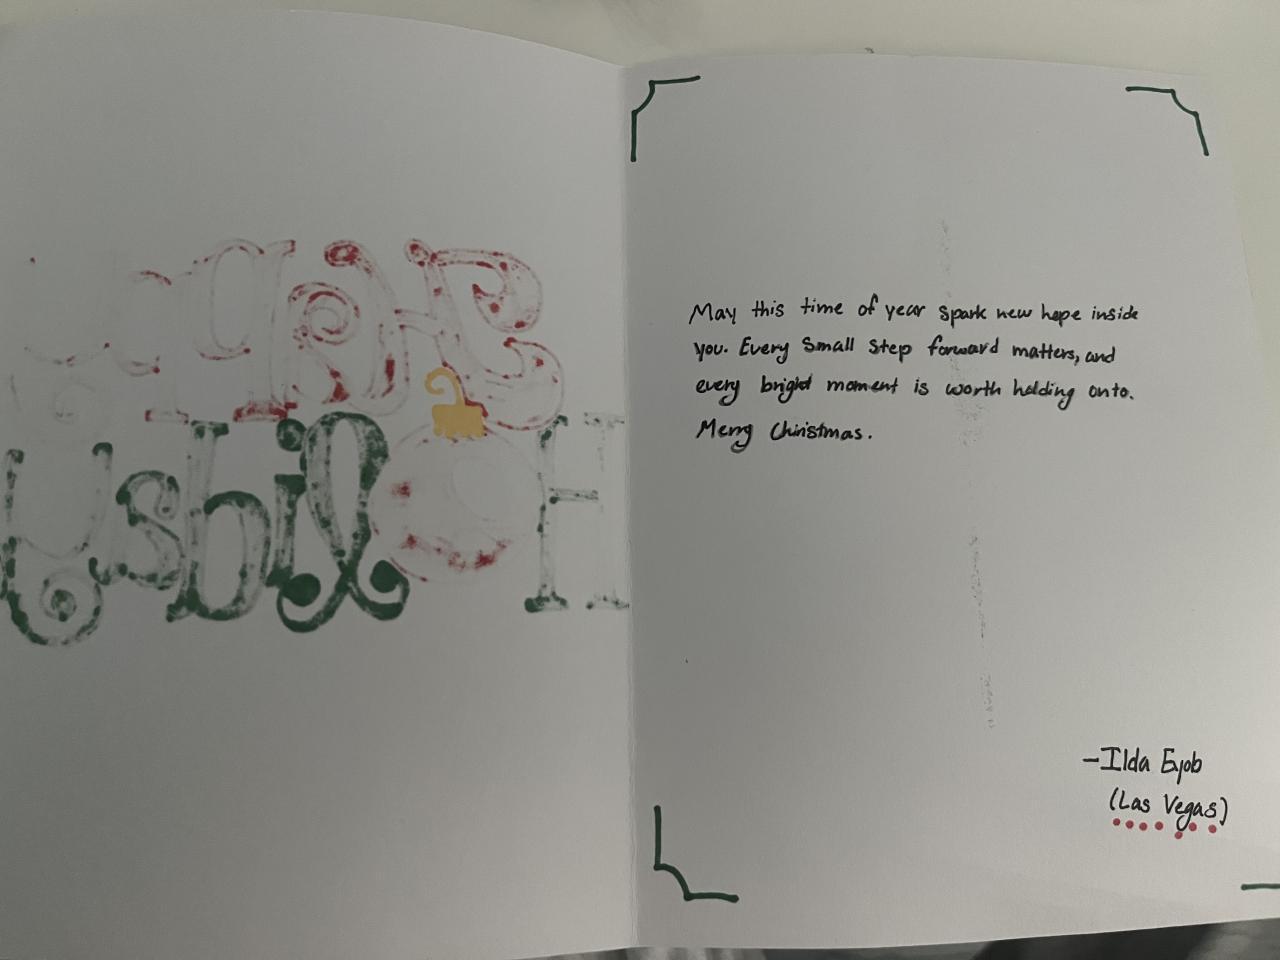 May this time of year spark new hope inside
you. Every small step forward matters, and
every bright moment is worth holding onto.
Merry Christmas.
-Ilda Eyob
(Las Vegas)